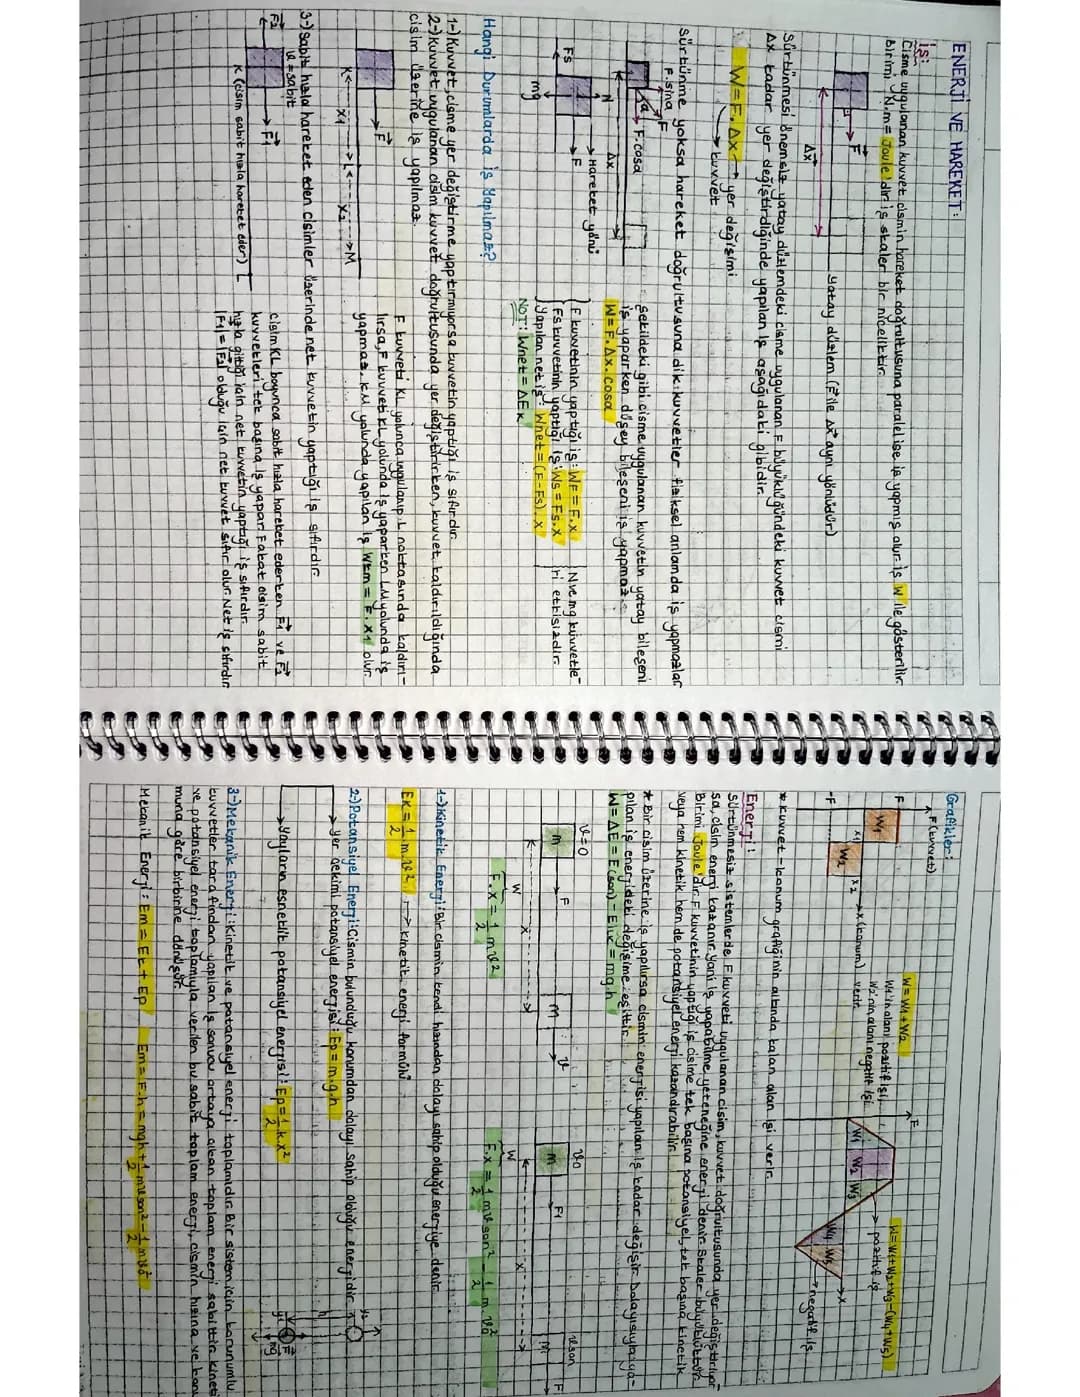 ENERJİ VE HAREKET:
İş:
Cisme uygulanan kuvvet cismin hareket doğrultusuna paralel ise iş yapmış olur. İş W ile gösterilir.
Birimi N.m = Joule'dir. İş skaler bir niceliktir.
F
Δx
Yatay düzlem (F ile Δx aynı yönlüdür)
Sürtünmesi önemsiz yatay düzlemdeki cisme uygulanan F büyüklüğündeki kuvvet cismi
Δx kadar yer değiştirdiğinde yapılan iş aşağıdaki gibidir.
W = F. Δx → yer değişimi
→ kuvvet
Sürtünme yoksa hareket doğrultusuna dik kuvvetler fiziksel anlamda iş yapmazlar
F.sina
F
a
F.cosa
Δx
Şekildeki gibi cisme uygulanan kuvvetin yatay bileşeni
iş yaparken düşey bileşeni iş yapmaz.
W = F. Δx. cosa
N
→ Hareket yönü
F
Fs
mg
F kuvvetinin yaptığı iş: WF = F.x
Fs kuvvetinin yaptığı iş: Ws = Fs.x
Yapılan net iş: Wnet = (F - Fs). x
N ve mg kuvvetle-
ri etkisizdir.
NOT: Wnet = ΔEk
Hangi Durumlarda İş Yapılmaz?
1-) Kuvvet, cisme yer değiştirme yaptırmıyorsa kuvvetin yaptığı iş sıfırdır.
2-) Kuvvet uygulanan cisim kuvvet doğrultusunda yer değiştirirken, kuvvet kaldırıldığında
cisim üzerine iş yapılmaz.
F
K ← X1 → L ← X2 → M
F kuvveti KL yolunca uygulanıp L noktasında kaldırı-
lırsa, F kuvveti KL yolunda iş yaparken LM yolunda iş
yapmaz. KM yolunda yapılan iş WKM = F. X1 olur.
3-) Sabit hızla hareket eden cisimler üzerinde net kuvvetin yaptığı iş sıfırdır.
v = sabit
F2
F1
K (cisim sabit hızla hareket eder) L
Cisim KL boyunca sabit hızla hareket ederken F1 ve F2
kuvvetleri tek başına iş yapar. Fakat cisim sabit
hızla gittiği için net kuvvetin yaptığı iş sıfırdır.
|F1| = |F2| olduğu için net kuvvet sıfır olur. Net iş sıfırdır
Grafikler:
F (kuvvet)
F
W1
x1
W2
x2
x (konum)
-F
W = W1 + W2
W1'in alanı pozitif işi,
W2'nin alanı negatif işi
verir.
F
W1 W2 W3
W4 W5
x
W = W1 + W2 + W3 - (W4 + W5)
→ pozitif iş
→ negatif iş
* Kuvvet - konum grafiğinin altında kalan alan işi verir.
Enerji:
Sürtünmesiz sistemlerde F kuvveti uygulanan cisim, kuvvet doğrultusunda yer değiştiriyor-
sa, cisim enerji kazanır. Yani iş yapabilme yeteneğine enerji denir. Skaler büyüklüktür.
Birimi Joule'dir. F kuvvetinin yaptığı iş cisme tek başına potansiyel, tek başına kinetik
veya hem kinetik hem de potansiyel enerji kazandırabilir.
* Bir cisim üzerine iş yapılırsa cismin enerjisi yapılan iş kadar değişir. Dolayısıyla ya-
pılan iş enerjideki değişime eşittir.
W = ΔE = E(son) - Eilk = mgh
v = 0
m
F
m
v
x
W
F. x = 1/2 mv²
v0
m
F1
x
vson
m
F
W
F. x = 1/2 mv son² - 1/2 m. v0²
1-) Kinetik Enerji: Bir cismin kendi hızından dolayı sahip olduğu enerjiye denir.
Ek = 1/2 m. v² → Kinetik enerji formülü
2-) Potansiyel Enerji: Cismin bulunduğu konumdan dolayı sahip olduğu enerjidir.
→ Yer çekimi potansiyel enerjisi: Ep = m.g.h
→ Yayların esneklik potansiyel enerjisi: Ep = 1/2 k. x²
h
F
mg
3-) Mekanik Enerji: Kinetik ve potansiyel enerji toplamıdır. Bir sistem için korunumlu
kuvvetler tarafından yapılan iş sonucu ortaya çıkan toplam enerji sabittir. Kineti
ve potansiyel enerji toplamıyla verilen bu sabit toplam enerji, cismin hızına ve konu
muna göre birbirine dönüşür.
Mekanik Enerji: Em = Ek + Ep Em = F.h = mgh + 1/2 mvson² - 1/2 mv0²